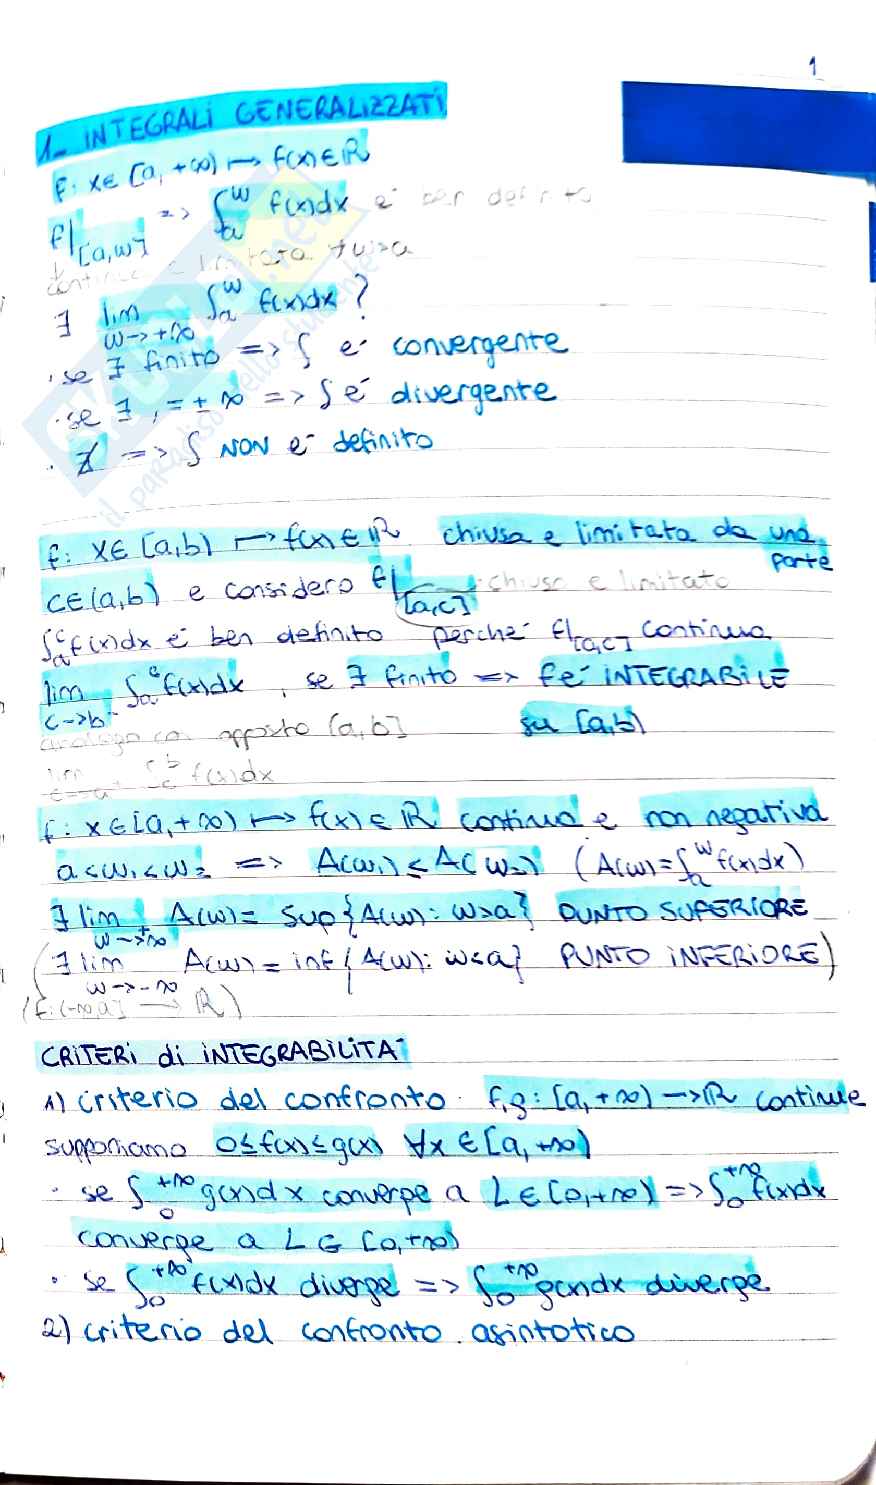 1
1_ INTEGRALI GENERALIZZATI
f: x∈[a,+∞) ↦ f(x)∈ℝ
f|[a,w] => ∫_a^w f(x)dx é ben definito
continua e limitata ∀w>a
∃ lim w->+∞ ∫_a^w f(x)dx?
· se ∃ finito => ∫ é convergente
· se ∃, = ± ∞ => ∫ é divergente
· ∄ => ∫ NON é definito
f: x∈[a,b) ↦ f(x)∈ℝ chiusa e limitata da una parte
c∈(a,b) e considero f|[a,c] chiuso e limitato
∫_a^c f(x)dx é ben definito perché f|[a,c] continua
lim c->b⁻ ∫_a^c f(x)dx, se ∃ finito => f é INTEGRABILE
su [a,b)
analogo con opposto (a,b]
lim c->a⁺ ∫_c^b f(x)dx
f: x∈[a,+∞) ↦ f(x)∈ℝ continua e non negativa
a<w₁<w₂ => A(w₁)≤A(w₂) (A(w)=∫_a^w f(x)dx)
∃ lim w->+∞ A(w) = sup{A(w): w>a} PUNTO SUPERIORE
(∃ lim w->-∞ A(w) = inf{A(w): w<a} PUNTO INFERIORE)
(f:(-∞,a] -> ℝ)
CRITERI di INTEGRABILITÁ
1) criterio del confronto. f,g: [a,+∞) -> ℝ continue
supponiamo 0≤f(x)≤g(x) ∀x∈[a,+∞)
· se ∫_0^+∞ g(x)dx converge a L∈[0,+∞) => ∫_0^+∞ f(x)dx
converge a L∈[0,+∞)
· se ∫_0^+∞ f(x)dx diverge => ∫_0^+∞ g(x)dx diverge
2) criterio del confronto asintotico
SKUOLA.net
il paradiso dello studente